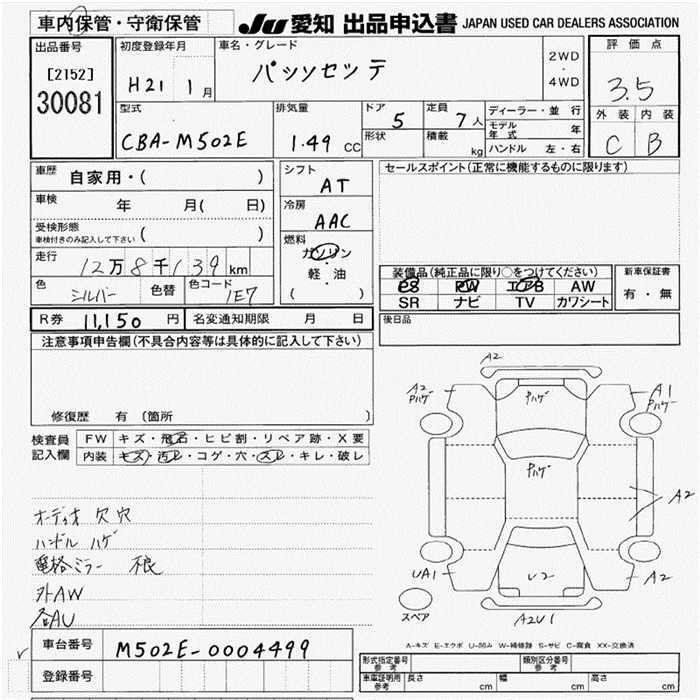 車内保管・守衛保管
JU 愛知 出品申込書 JAPAN USED CAR DEALERS ASSOCIATION
出品番号
[2152]
30081
初度登録年月
H21 1月
車名・グレード
パッソセッテ
2WD
・
4WD
評価点
3.5
外装 内装
C B
型式
CBA-M502E
排気量
1.49 CC
ドア 5
形状
定員 7人
積載 kg
ディーラー・並行
モデル年式 年
ハンドル 左・右
車歴 自家用・( )
車検 年 月( 日)
受検形態
車検付きのみ記入して下さい ( )
走行 12万8千139km
色 シルバー 色替 色コード 1E7
シフト
AT
冷房
AAC
燃料
ガソリン
・
軽・油
( )
セールスポイント(正常に機能するものに限ります)
装備品(純正品に限り○をつけてください)
PS PW エアB AW
SR ナビ TV カワシート
新車保証書
有・無
R券 11,150円 名変通知期限 月 日
後日品
注意事項申告欄(不具合内容等は具体的に記入して下さい)
修復歴 有 〔箇所 〕
検査員
記入欄
FW キズ・飛石・ヒビ割・リペア跡・X要
内装 キズ・汚レ・コゲ・穴・スレ・キレ・破レ
オーディオ欠穴
ハンドル ハゲ
電格ミラー 不良
外AW
各AU
A2
A2 Pハゲ
Pハゲ
A1
Pハゲ
Pハゲ
A2
UA1
U2
A2
A2U1
スペア
A-キズ E-エクボ U-凹み W-補修跡 S-サビ C-腐食 XX-交換済
車台番号 M502E-0004499
登録番号
形式指定番号
参考
類別区分番号
参考
車庫証明用
参考
長さ cm 幅 cm 高さ cm